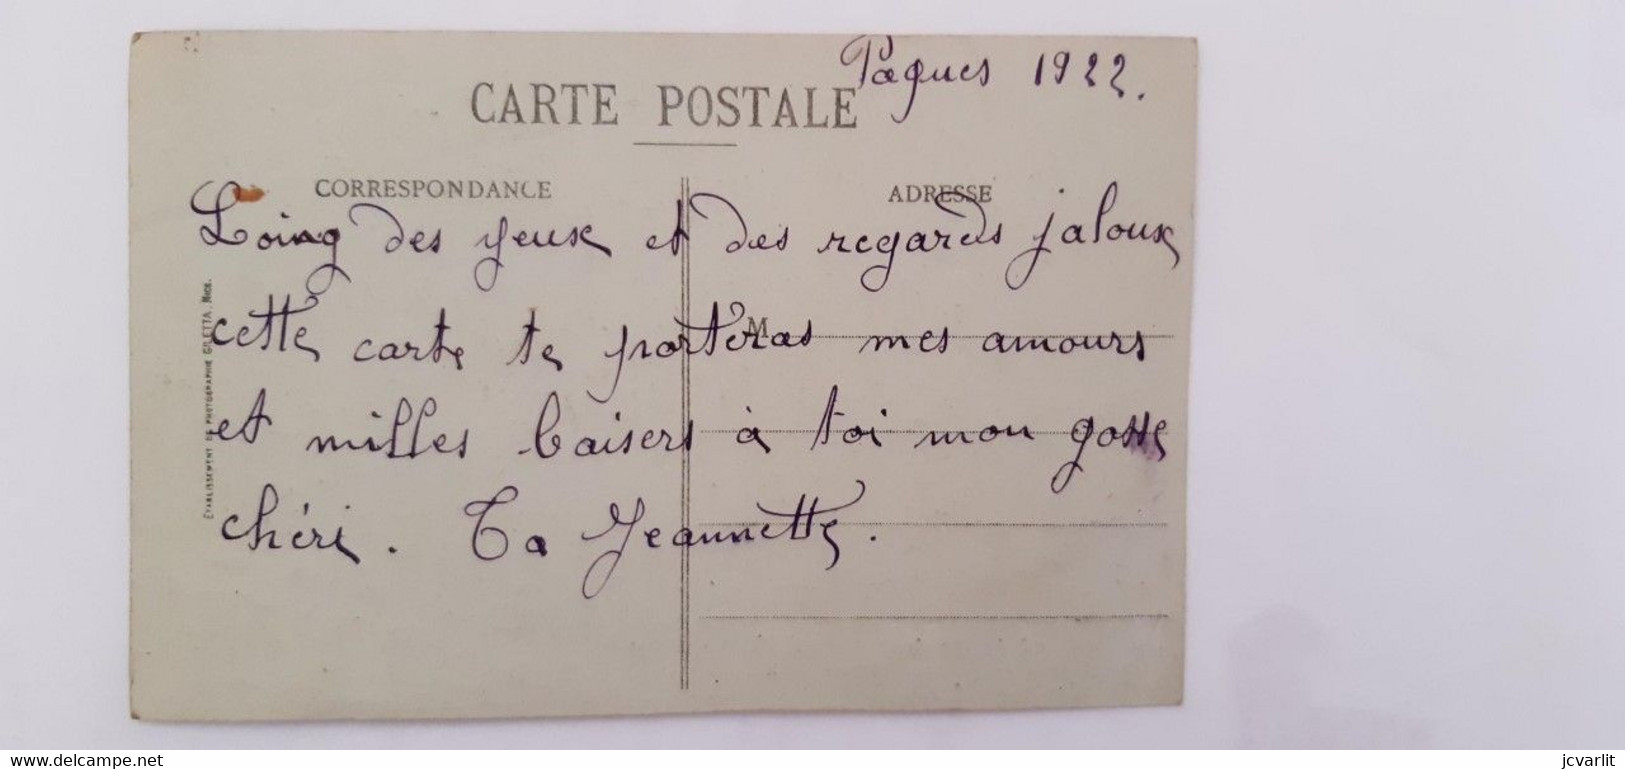 Paques 1922.
CARTE POSTALE
CORRESPONDANCE
ADRESSE
Loing des yeux et des regards jaloux
cette carte te porteras mes amours
M
et milles baisers à toi mon gosse
chéri. Ta Jeannette.
ÉTABLISSEMENT DE PHOTOGRAPHIE GILETTA, NICE.
www.delcampe.net
jcvarlit